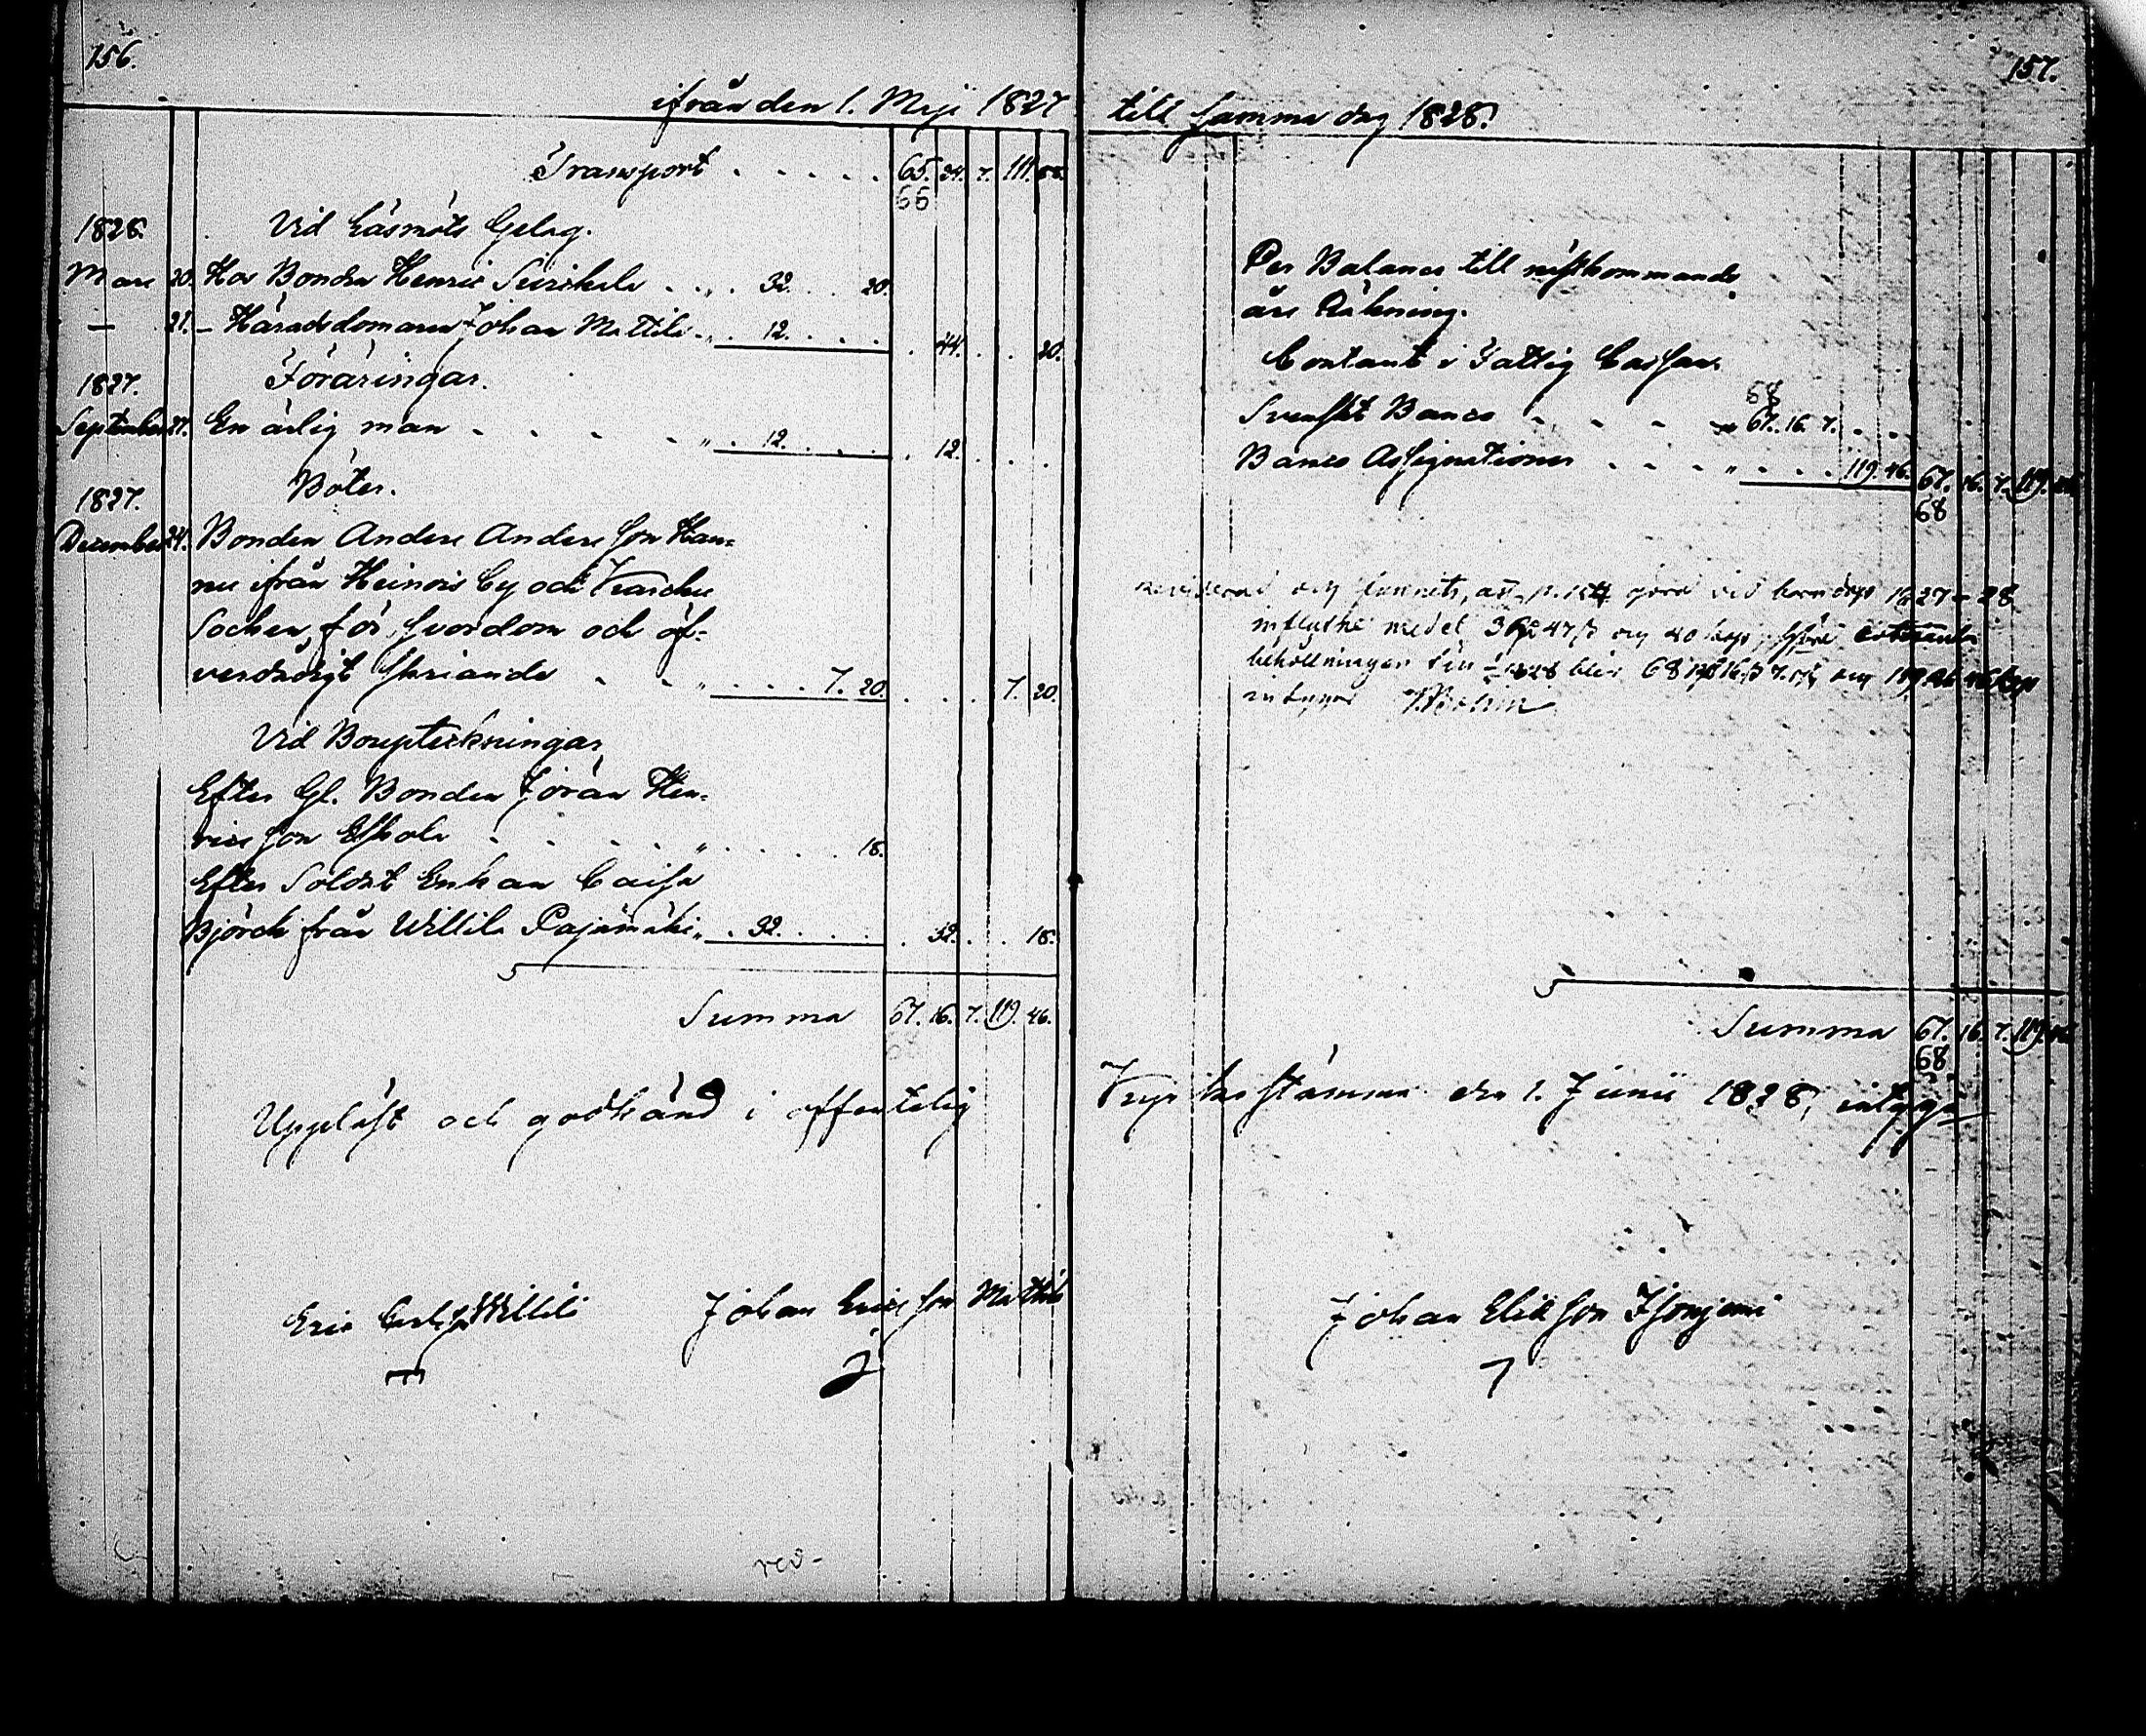 156.
ifrån den 1. Maji 1827
Transport . . . . . 65. 34. 7. 111. 88.
66
1828. Vid Läsmöts Gelag.
Mars 20. Hos Bonden Henric Suirkala . . „ . 32. . . 20.
— 21. — Häradsdomaren Johan Mattila . „ . 12. . . . . . 44. . . 20.
1827. Föräringar.
September 27. En ärlig man - . - . - „ . 12. . . . . 12. . . .
1827. Böter.
December 24. Bonden Anders Andersson Han=
nu ifrån Heinois by och
Socken, för svordom och öf=
verdådigt skriande . . „ . . . . 7. 20. . . . 7. 20.
Vid Bouptekningar
Efter Gl. Bonden Jöran Hen=
ricsson Eskola . . . . „ . . . . . 18.
Efter Soldat Enkan Caisa
Björck från Willila Pajamäki „ . 32. . . . . 32. . . 18.
Summa 67. 16. 7. 119. 46.
68
Uppläst och godkänd i offentelig
Eric Carlss Willila Johan Ericsson Mattila
rev-
157.
till samma dag 1828.
Per Balance till nästkommande
års Räkning.
Contant i Fattig Cassan
68
Svenskt Banco - . - . - 67. 16. 7. . .
Banco Assignationer . . . . „ . . . . 119. 46. 67. 16. 7. 119. 46.
68
och funnits, att gård vid 1827 - 28
influtne medel 36 47 och 40 kop
behållningen den 1828 blir 68 16 7 och 119 46 kop
intygar
Summa 67. 16. 7. 119. 46.
68
Kyrkostämma den 1. Junii 1828, intyga
Johan Eliksson Isonjemi